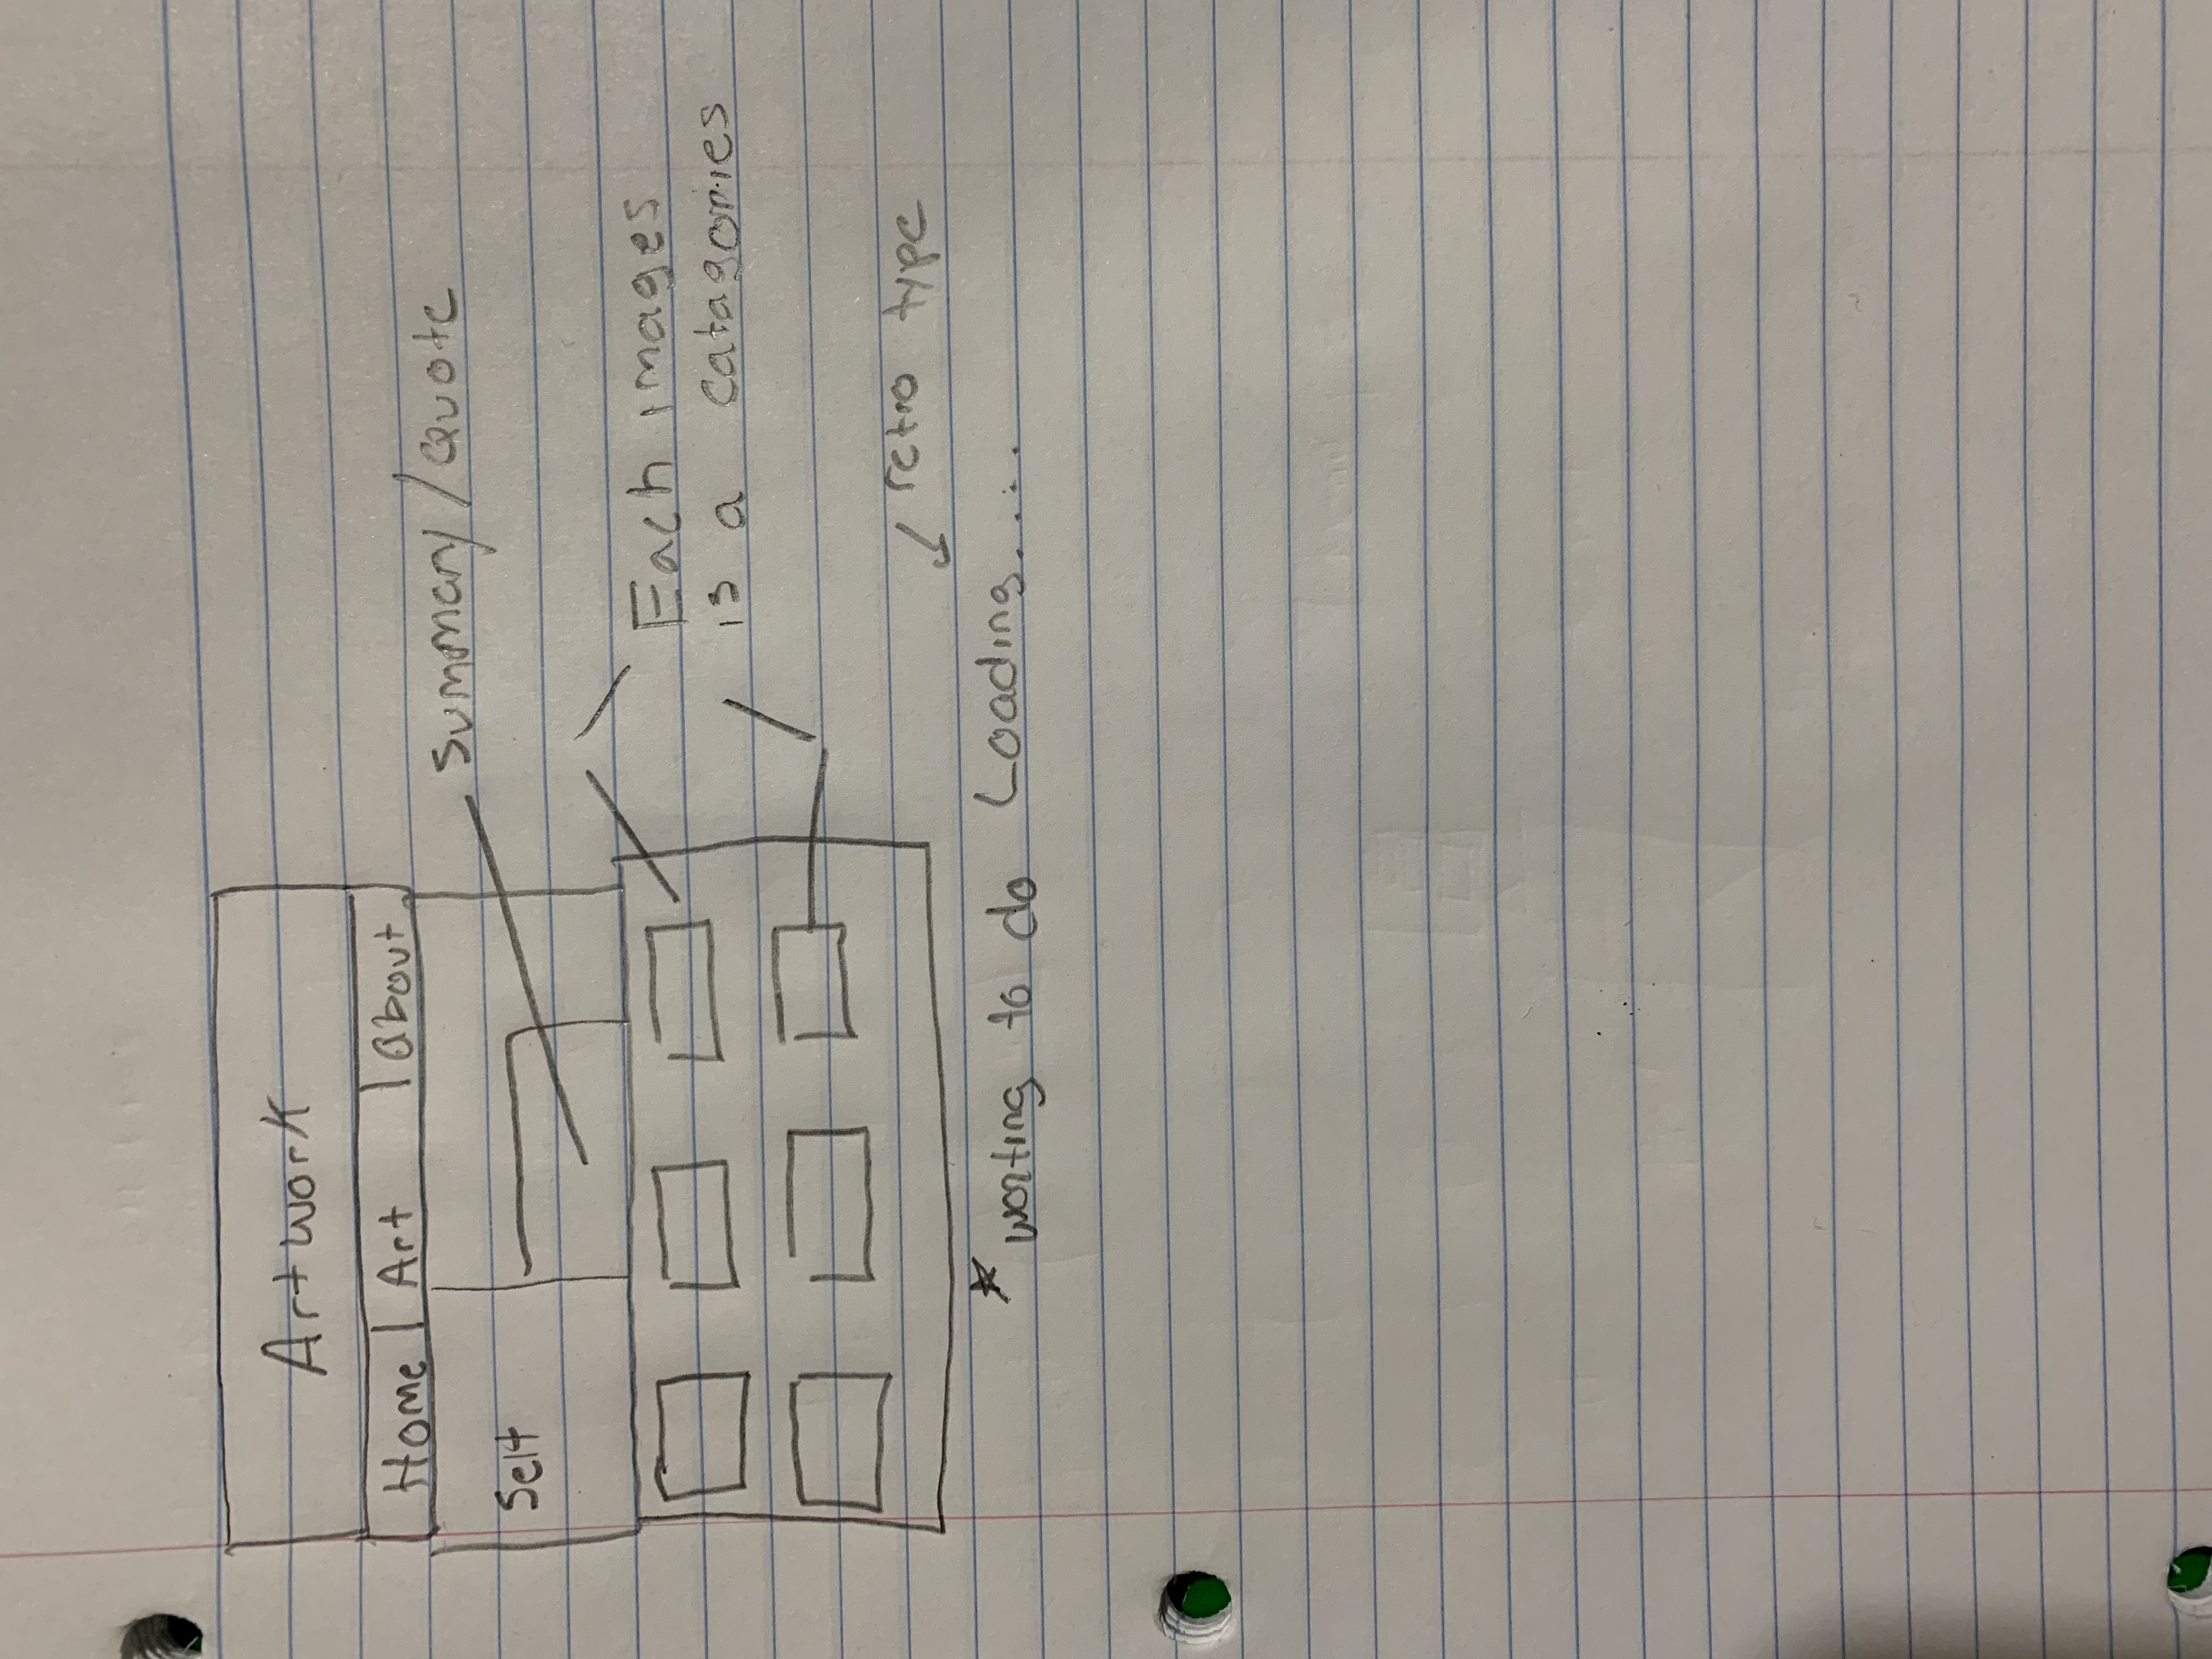 Artwork
Home | Art | About
Summary / Quote
Self
Each images
is a catagories
retro type
* to do Loading.....